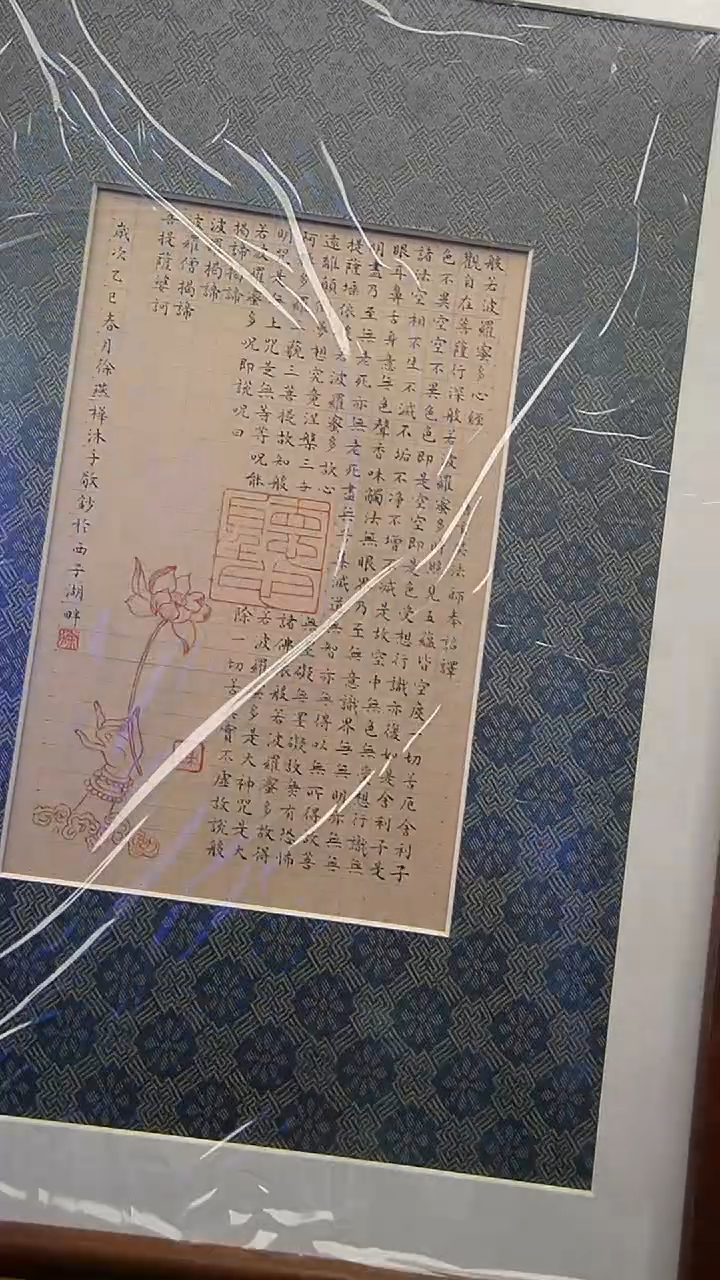 般若波羅蜜多心經 法師奉詔譯
觀自在菩薩行深般若波羅蜜多時照見五蘊皆空度一切苦厄舍利子
色不異空空不異色色即是空空即是色受想行識亦復如是舍利子是
諸法空相不生不滅不垢不净不增不減是故空中無色無受想行識無
眼耳鼻舌身意無色聲香味觸法無眼界乃至無意識界無無明亦無無
明盡乃至無老死亦無老死盡無滅道無智亦無得以無所得故菩
提薩埵依若波羅蜜多故心無罣礙無罣礙故無有恐怖
遠離顛倒夢想究竟涅槃三世諸佛依般若波羅蜜多故得
阿耨多羅三藐三菩提故知般若波羅蜜多是大神咒是大
明咒是無上咒是無等等咒能除一切苦真實不虛故說般
若波羅蜜多呪即說呪曰
揭諦揭諦
波羅揭諦
波羅僧揭諦
菩提薩婆訶
歲次乙巳春月徐燕樺沐手敬鈔於西子湖畔